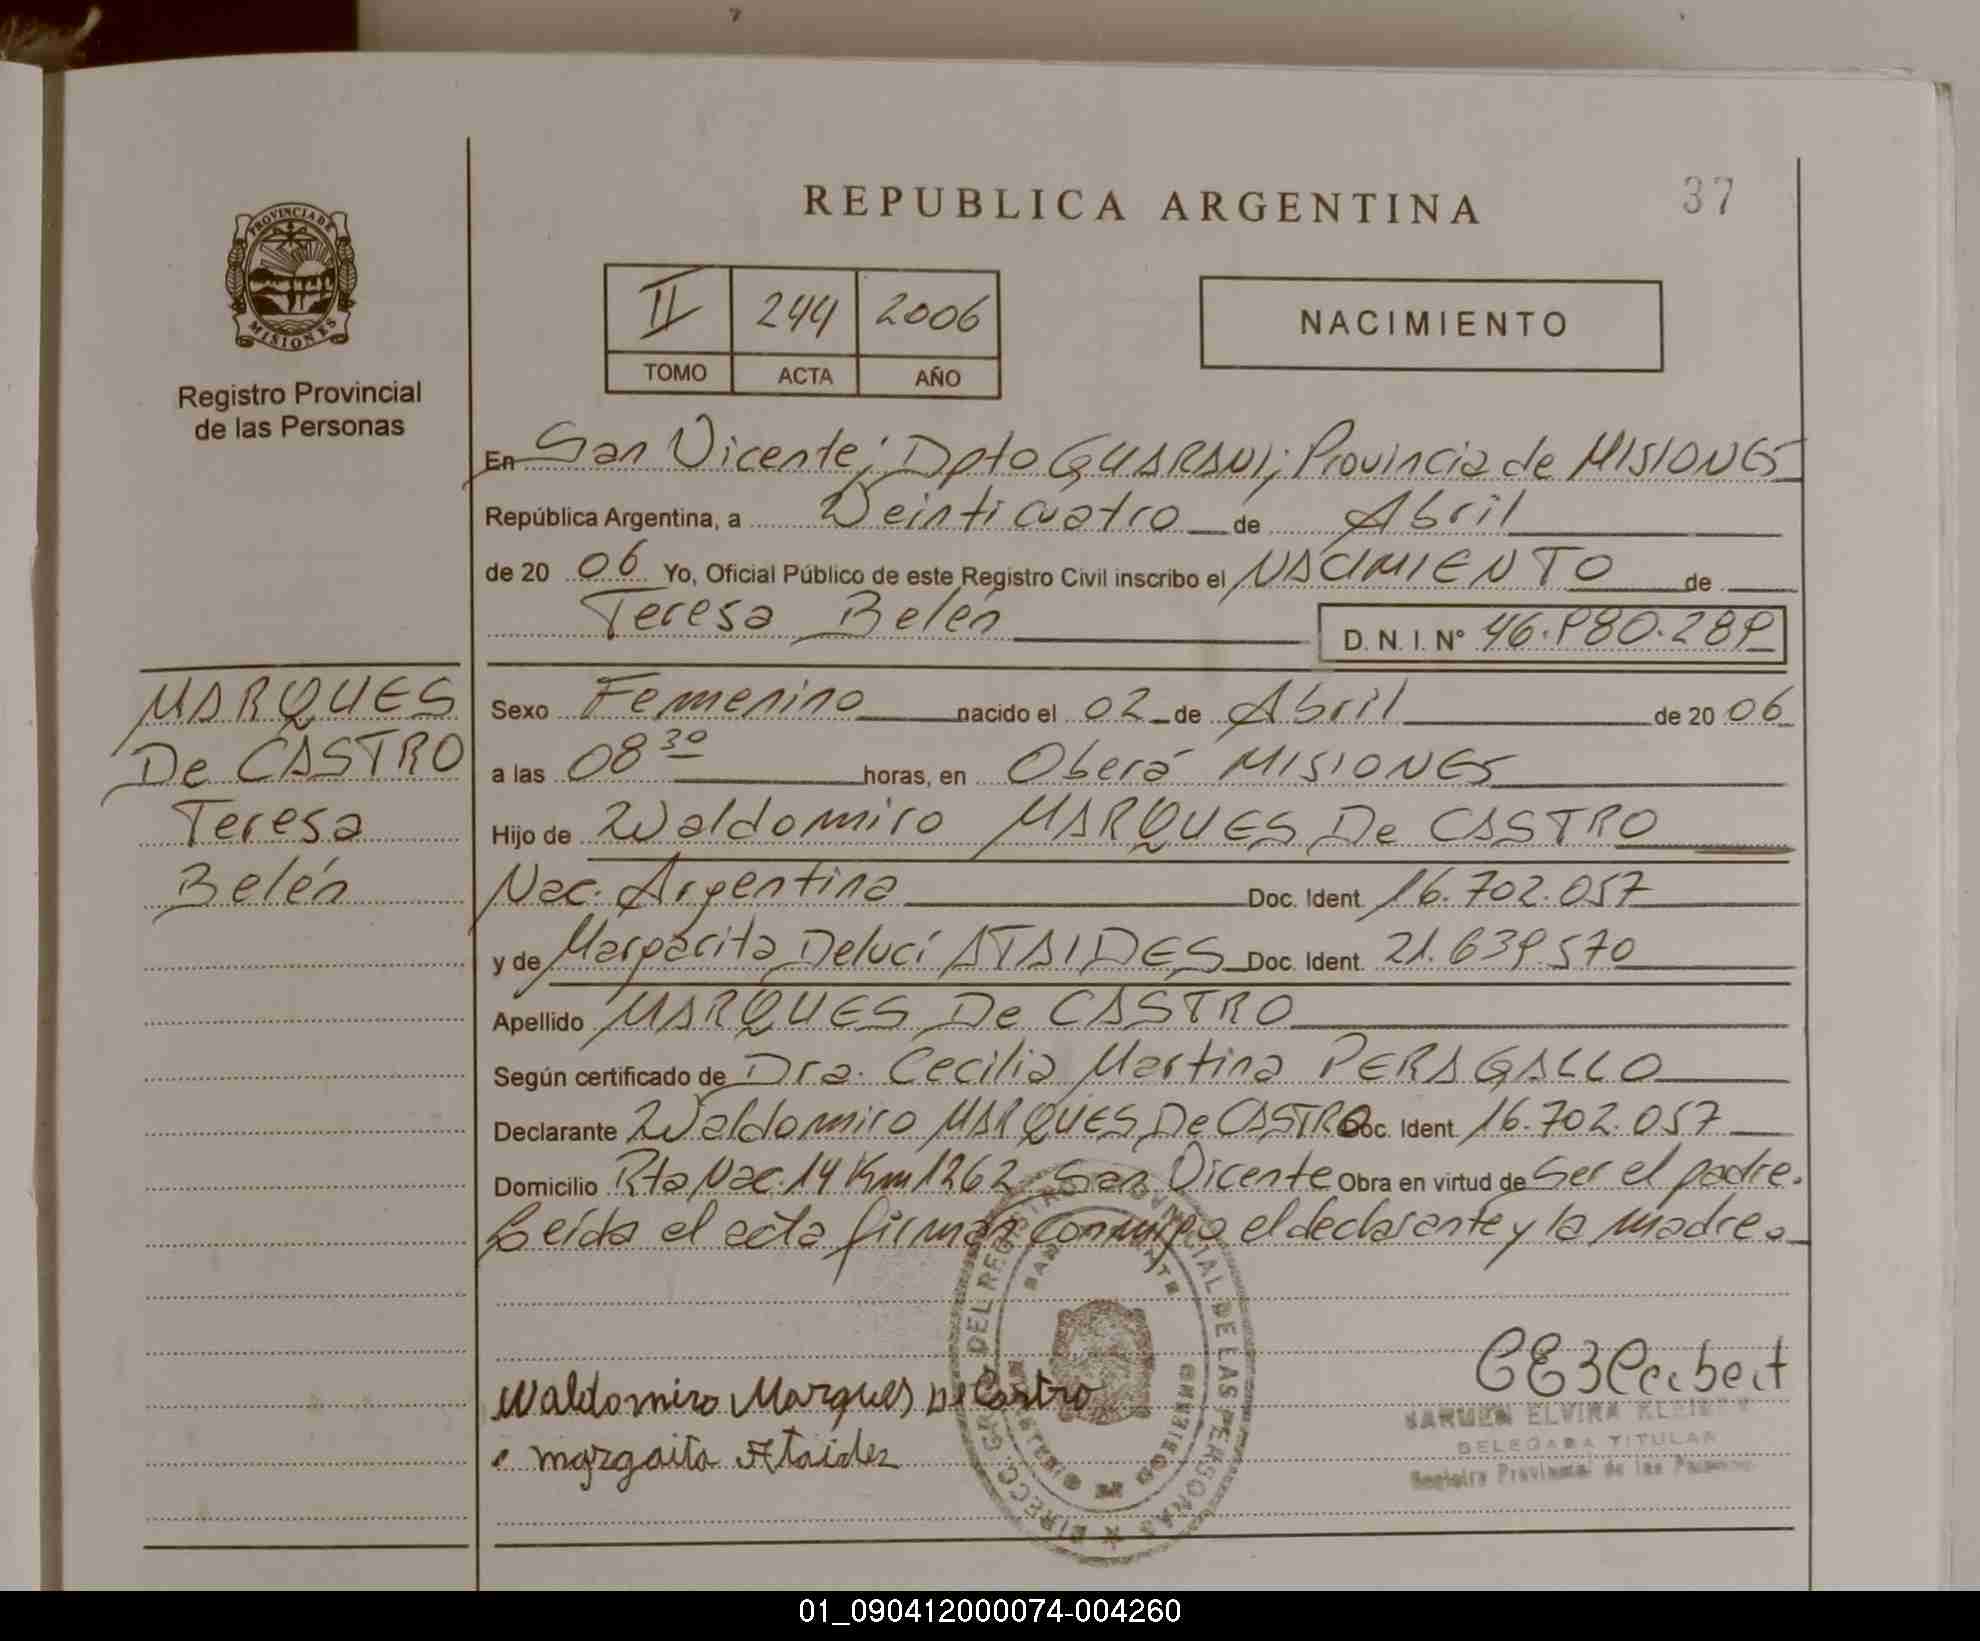 REPUBLICA ARGENTINA
37
PROVINCIA DE
MISIONES
Registro Provincial
de las Personas
II 244 2006
TOMO ACTA AÑO
NACIMIENTO
En San Vicente; Dpto GUARANI; Provincia de MISIONES
República Argentina, a Veinticuatro de Abril
de 20 06 Yo, Oficial Público de este Registro Civil inscribo el NACIMIENTO de
Teresa Belén D. N. I. Nº 46.980.289
MARQUES
De CASTRO
Teresa
Belén
Sexo Femenino nacido el 02 de Abril de 20 06
a las 08 30 horas, en Oberá MISIONES
Hijo de Waldomiro MARQUES De CASTRO
Nac. Argentina Doc. Ident. 16.702.057
y de Margarita Delucí ATAIDES Doc. Ident. 21.639.570
Apellido MARQUES De CASTRO
Según certificado de Dra. Cecilia Martina PERAGALLO
Declarante Waldomiro MARQUES De CASTRO Doc. Ident. 16.702.057
Domicilio Rta Nac. 14 Km 1262 San Vicente Obra en virtud de Ser el padre.
Leída el acta firman conmigo el declarante y la madre.
Waldomiro Marques De Castro
margaita Ataides
DELEGADA TITULAR
Registro Provincial de las Personas
01_090412000074-004260